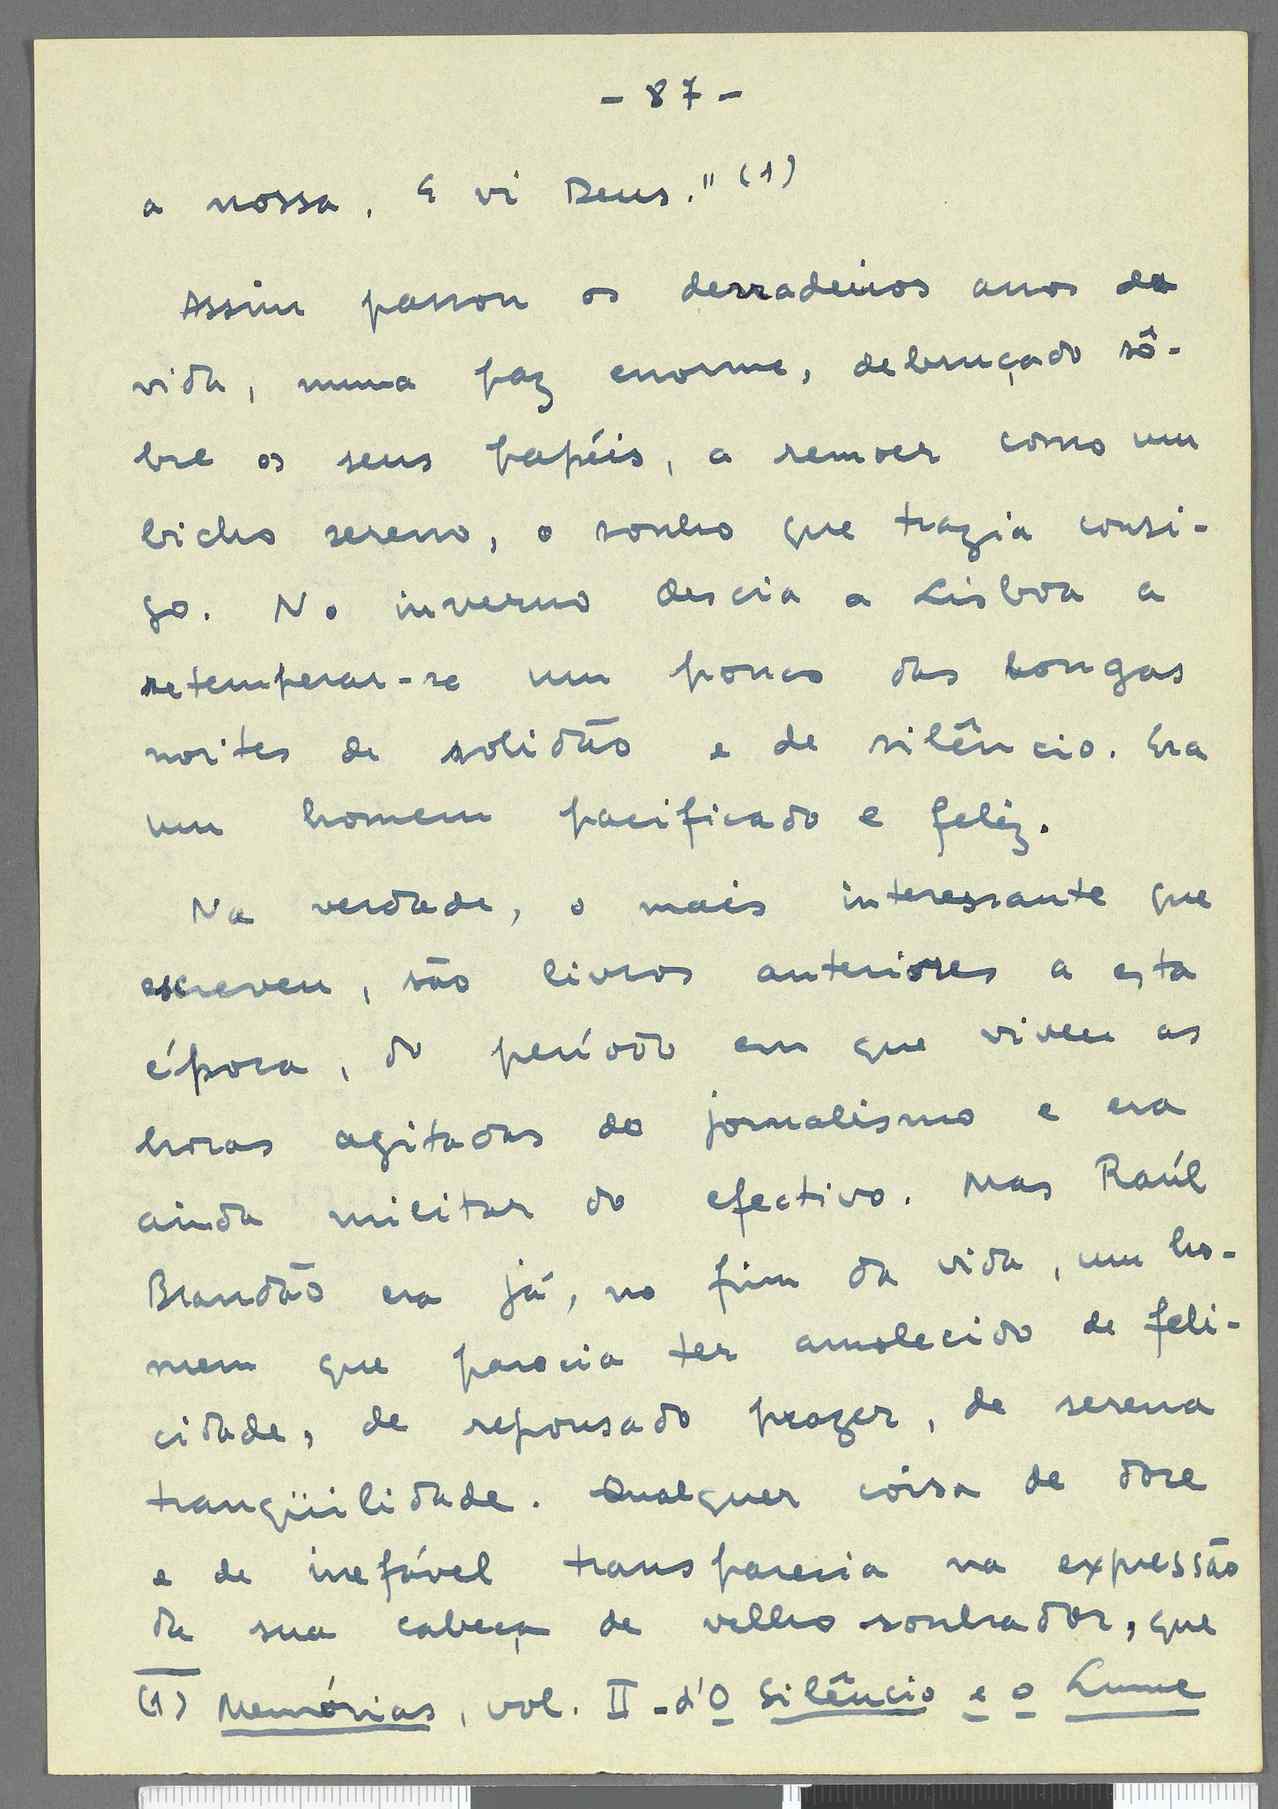 - 87 -
a nossa. E vi Deus." (1)
Assim passou os derradeiros anos da
vida, numa paz enorme, debruçado sô-
bre os seus papéis, a remoer como um
bicho sereno, o sonho que trazia consi-
go. No inverno descia a Lisboa a
retemperar-se um pouco das longas
noites de solidão e de silêncio. Era
um homem pacificado e feliz.
Na verdade, o mais interessante que
escreveu, são livros anteriores a esta
época, do período em que viveu as
horas agitadas do jornalismo e era
ainda militar do efectivo. Mas Raúl
Brandão era já, no fim da vida, um ho-
mem que parecia ter amolecido de feli-
cidade, de repousado prazer, de serena
tranqüilidade. Qualquer coisa de doce
e de inefável transparecia na expressão
da sua cabeça de velho sonhador, que
(1) Memórias, vol. II - d'O Silêncio e o Lume